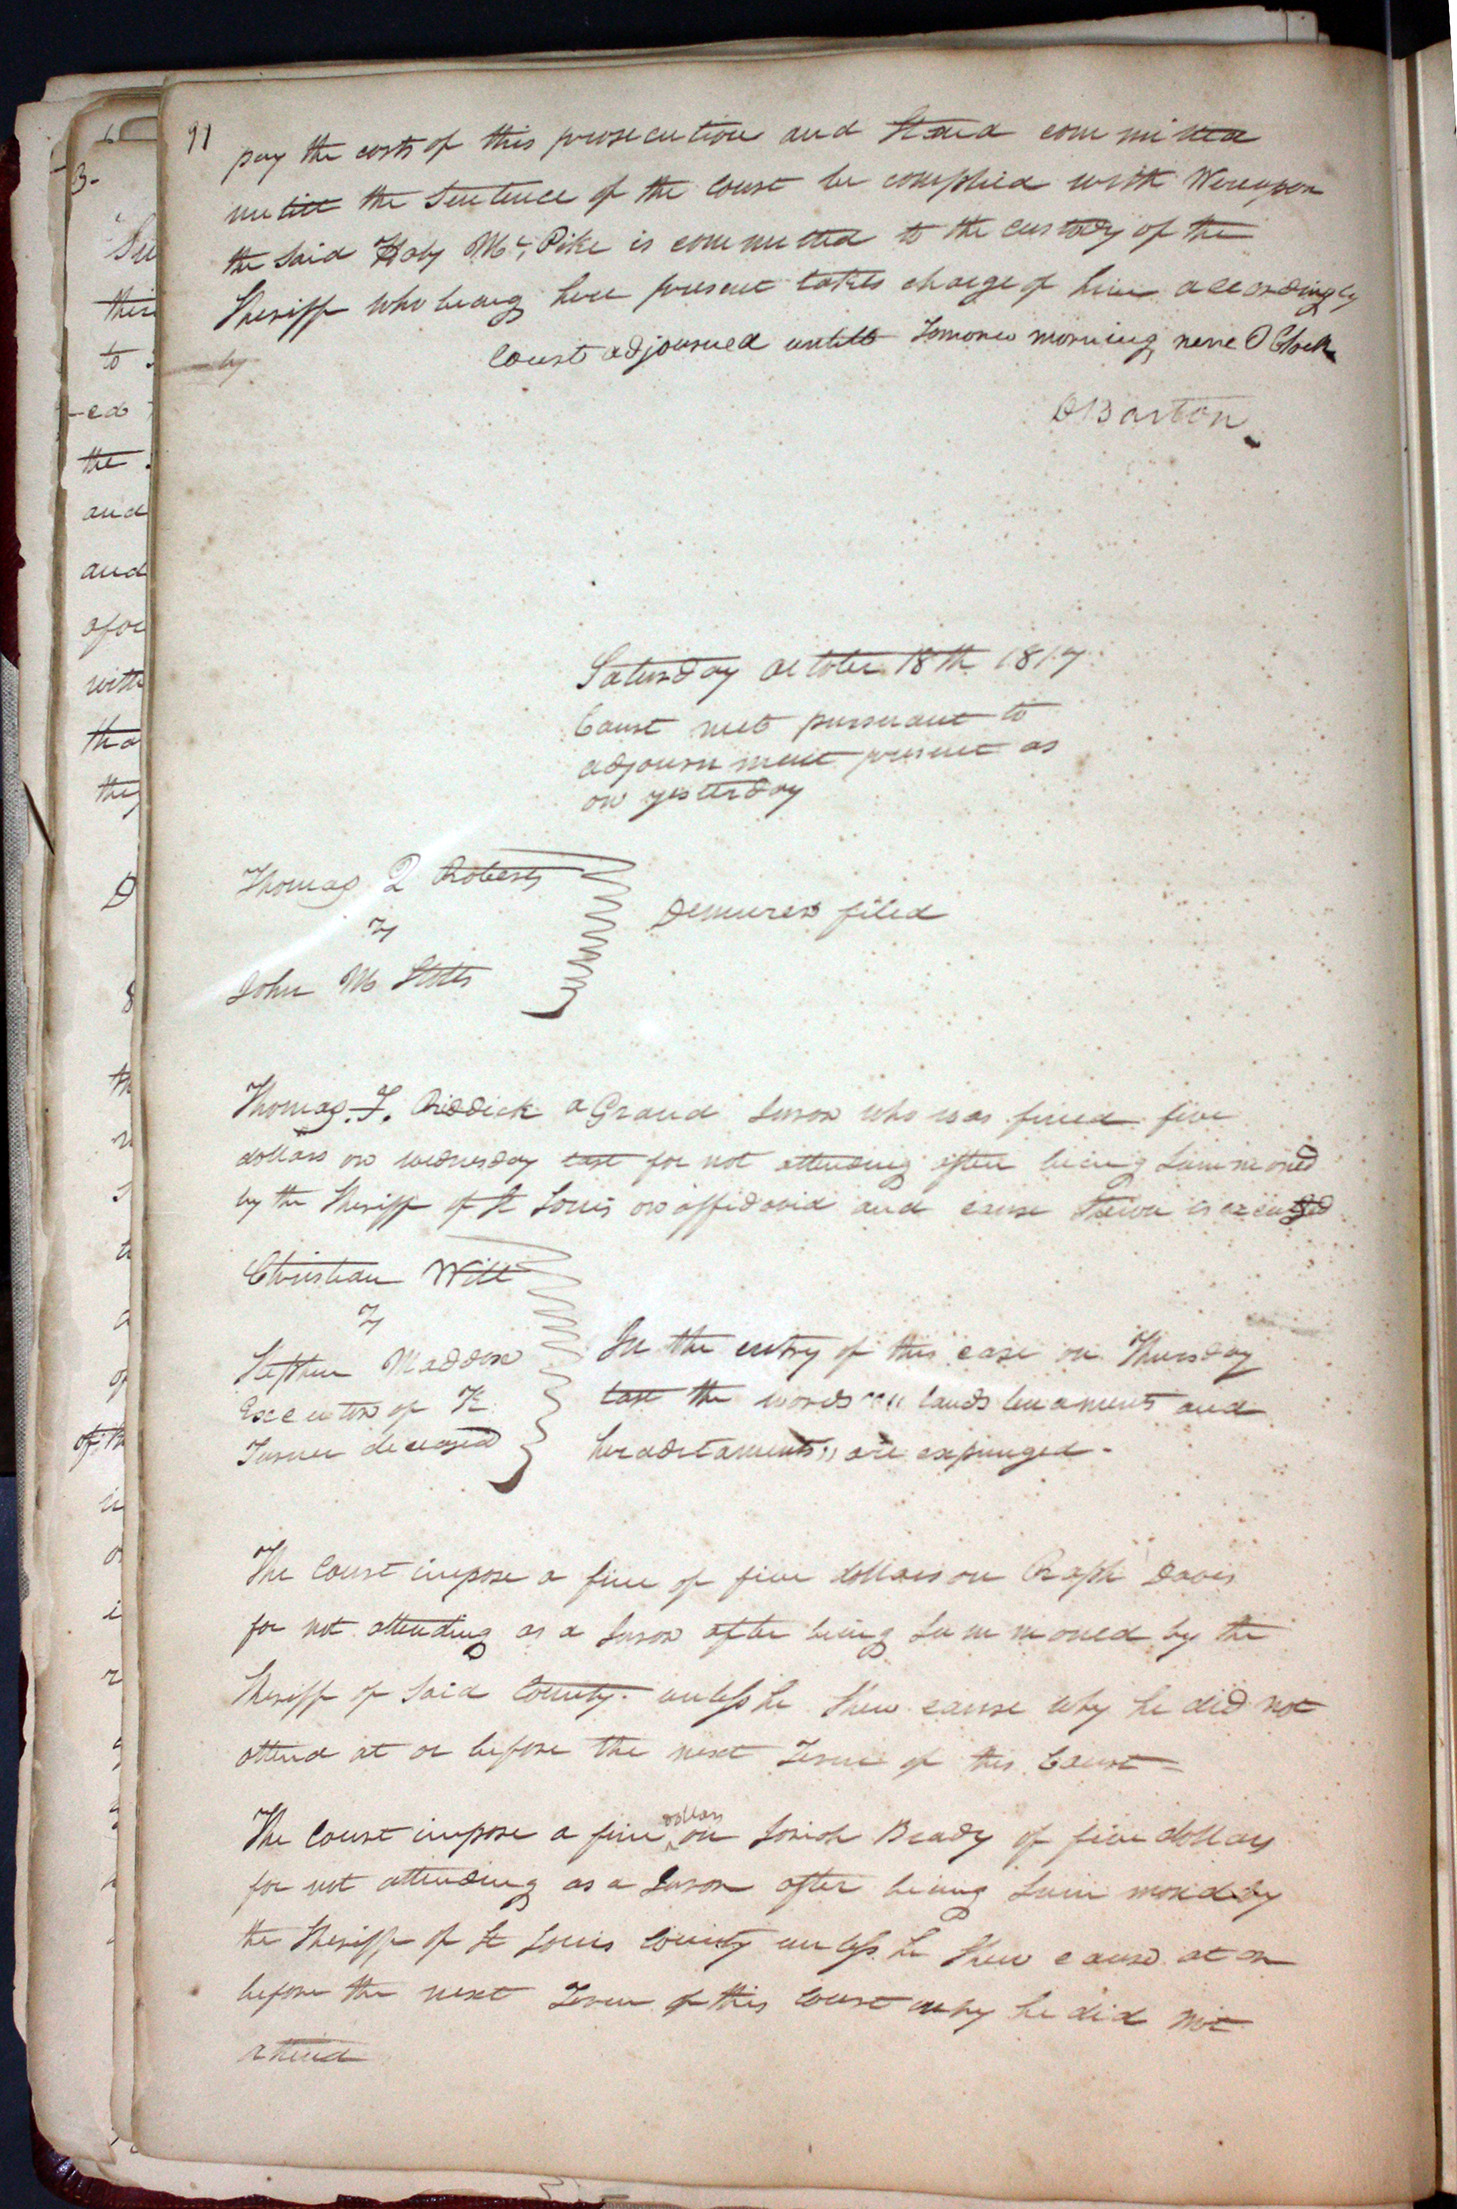 91
pay the costs of this prosecution and Stand committed
untill the Sentence of the Court be complied with Wereupon
the Said Haby Mc, Pike is committed to the custody of the
Sheriff who being here present takes charge of him accordingly
by
Court adjourned untill Tomorrow morning nine O Clock
D Barton
Saturday October 18th 1817
Court met pursuant to
adjournment present as
on yesterday
Thomas Q Roberts
vs
John M Stotts
Demurer filed
Thomas F. Riddick a Grand Juror who was fined five
dollars on wednesday last for not attending after being Summoned
by the Sheriff of St Louis on affidavid and cause Shewn is excused
Christian Witt
vs
Stephen Maddox
Executor of
Turner deceased
In the entry of this case on Thursday
last the words "" lands tenaments and
heradetaments" are expunged -
The Court impose a fine of five dollars on Raph Davis
for not attending as a Juror after being Summoned by the
Sheriff of Said County. unless he Shew cause why he did not
attend at or before the next Term of this Court =
The Court impose a fine dollars on Josiah Brady of five dollars
for not attending as a Juror after being Summoned by
the Sheriff of St Louis County unless he Shew cause at or
before the next Term of this Court why he did not
attend